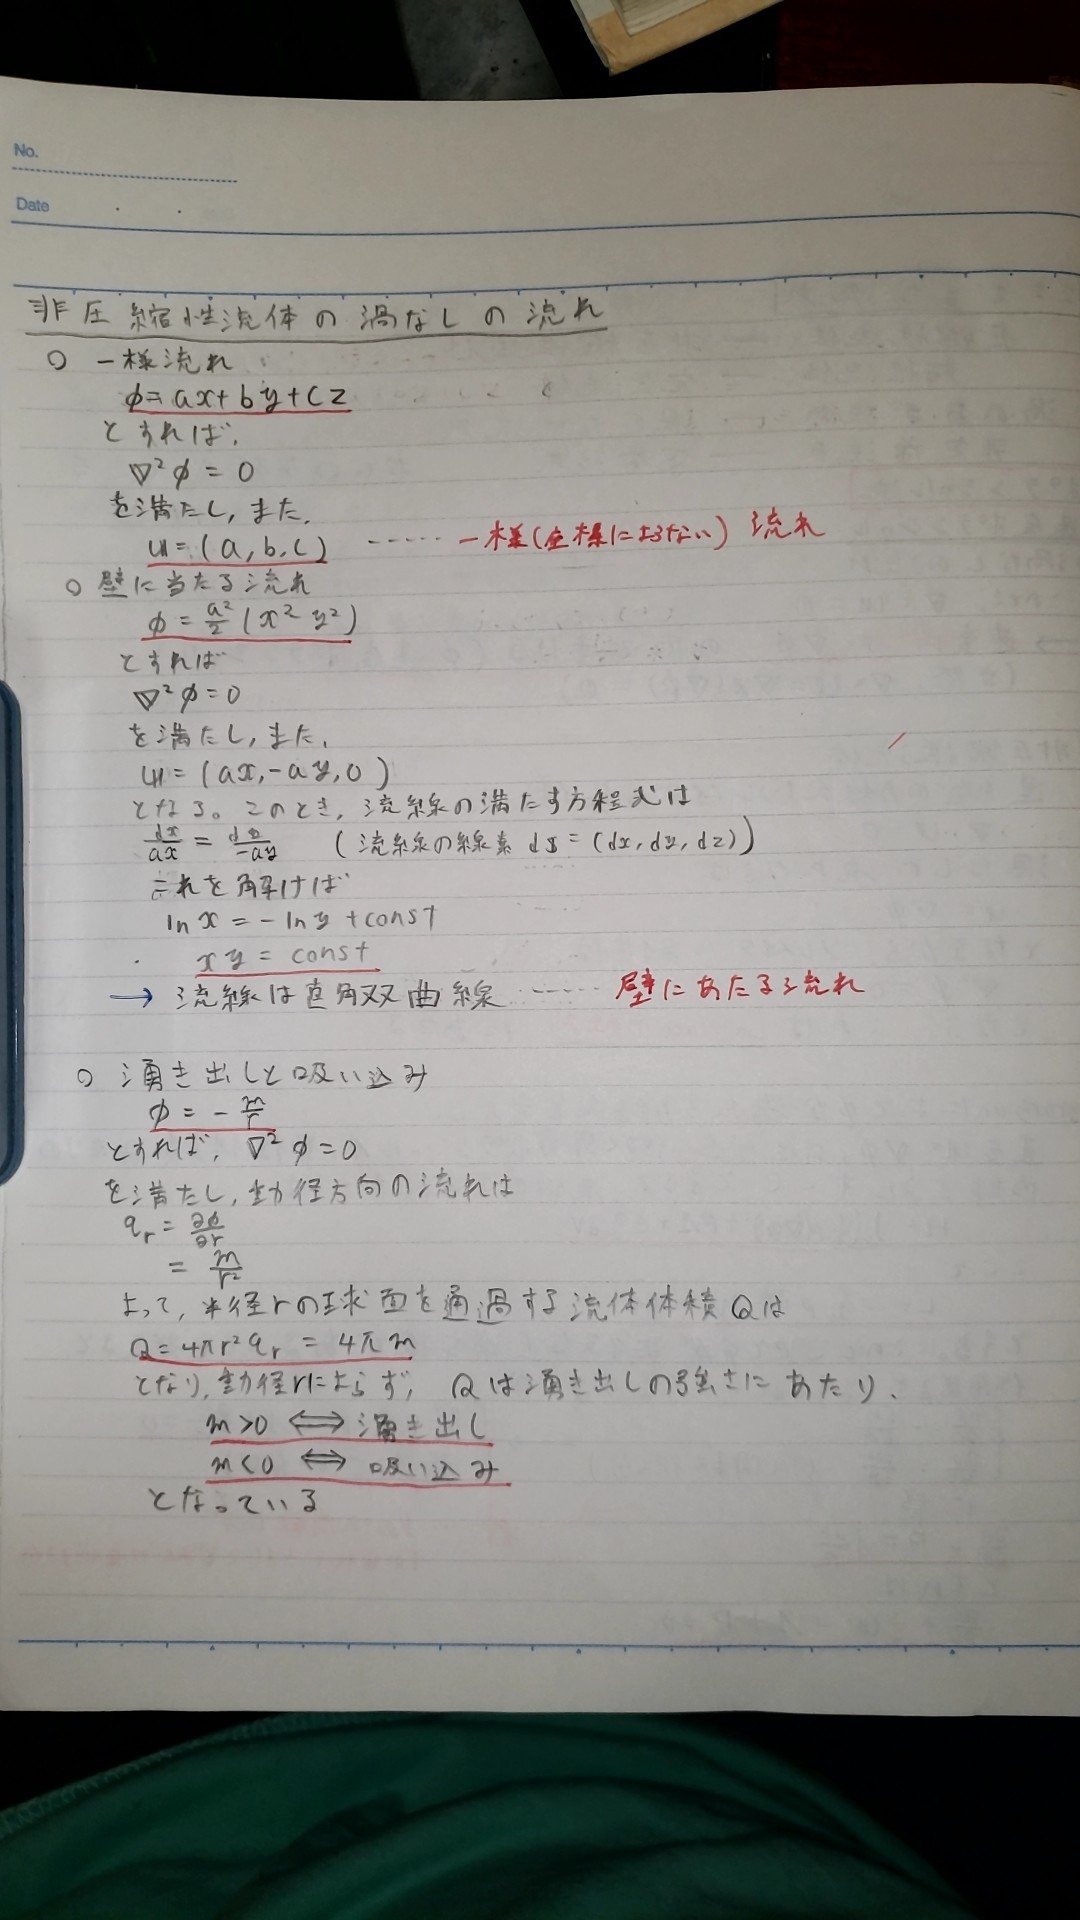 No.
Date
非圧縮性流体の渦なしの流れ
○ 一様流れ
φ=ax+by+cz
とすれば,
∇²φ=0
を満たし,また,
u=(a,b,c) ----- 一様(座標によらない)流れ
○ 壁に当たる流れ
φ=a²/2(x² y²)
とすれば
∇²φ=0
を満たし,また,
u=(ax,-ay,0)
となる。このとき,流線の満たす方程式は
dx/ax = dy/-ay (流線の線素 ds=(dx,dy,dz))
これを解けば
ln x = -ln y + const
xy = const
→ 流線は直角双曲線 ----- 壁にあたる流れ
○ 湧き出しと吸い込み
φ = - m/r
とすれば, ∇²φ=0
を満たし,動径方向の流れは
qr = ∂φ/∂r
= m/r²
よって,半径rの球面を通過する流体体積Qは
Q=4πr²qr = 4πm
となり,動径rによらず, Qは湧き出しの強さにあたり,
m>0 ⟺ 湧き出し
m<0 ⟺ 吸い込み
となっている